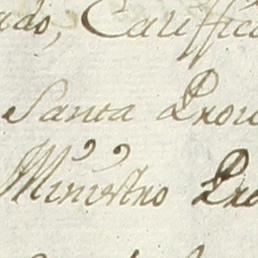 ado, Califica
Santa Prov
Ministro Pro